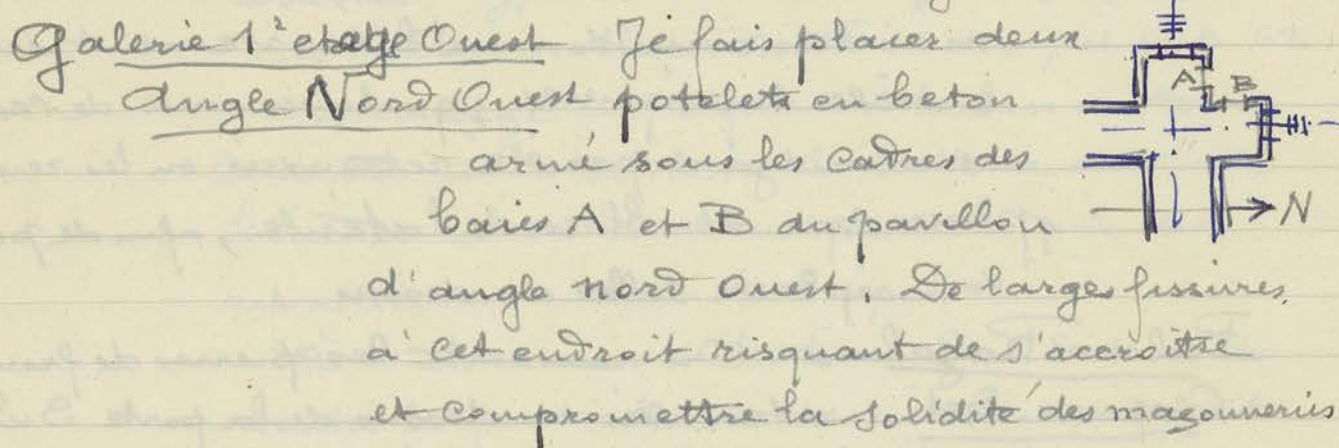 Galerie 1² etage Ouest Je fais placer deux
Angle Nord Ouest potelets en beton
armé sous les cadres des
baies A et B du pavillon
d'angle nord Ouest. De larges fissures
à cet endroit risquant de s'accroître
et compromettre la solidité des maçonneries
A
B
N